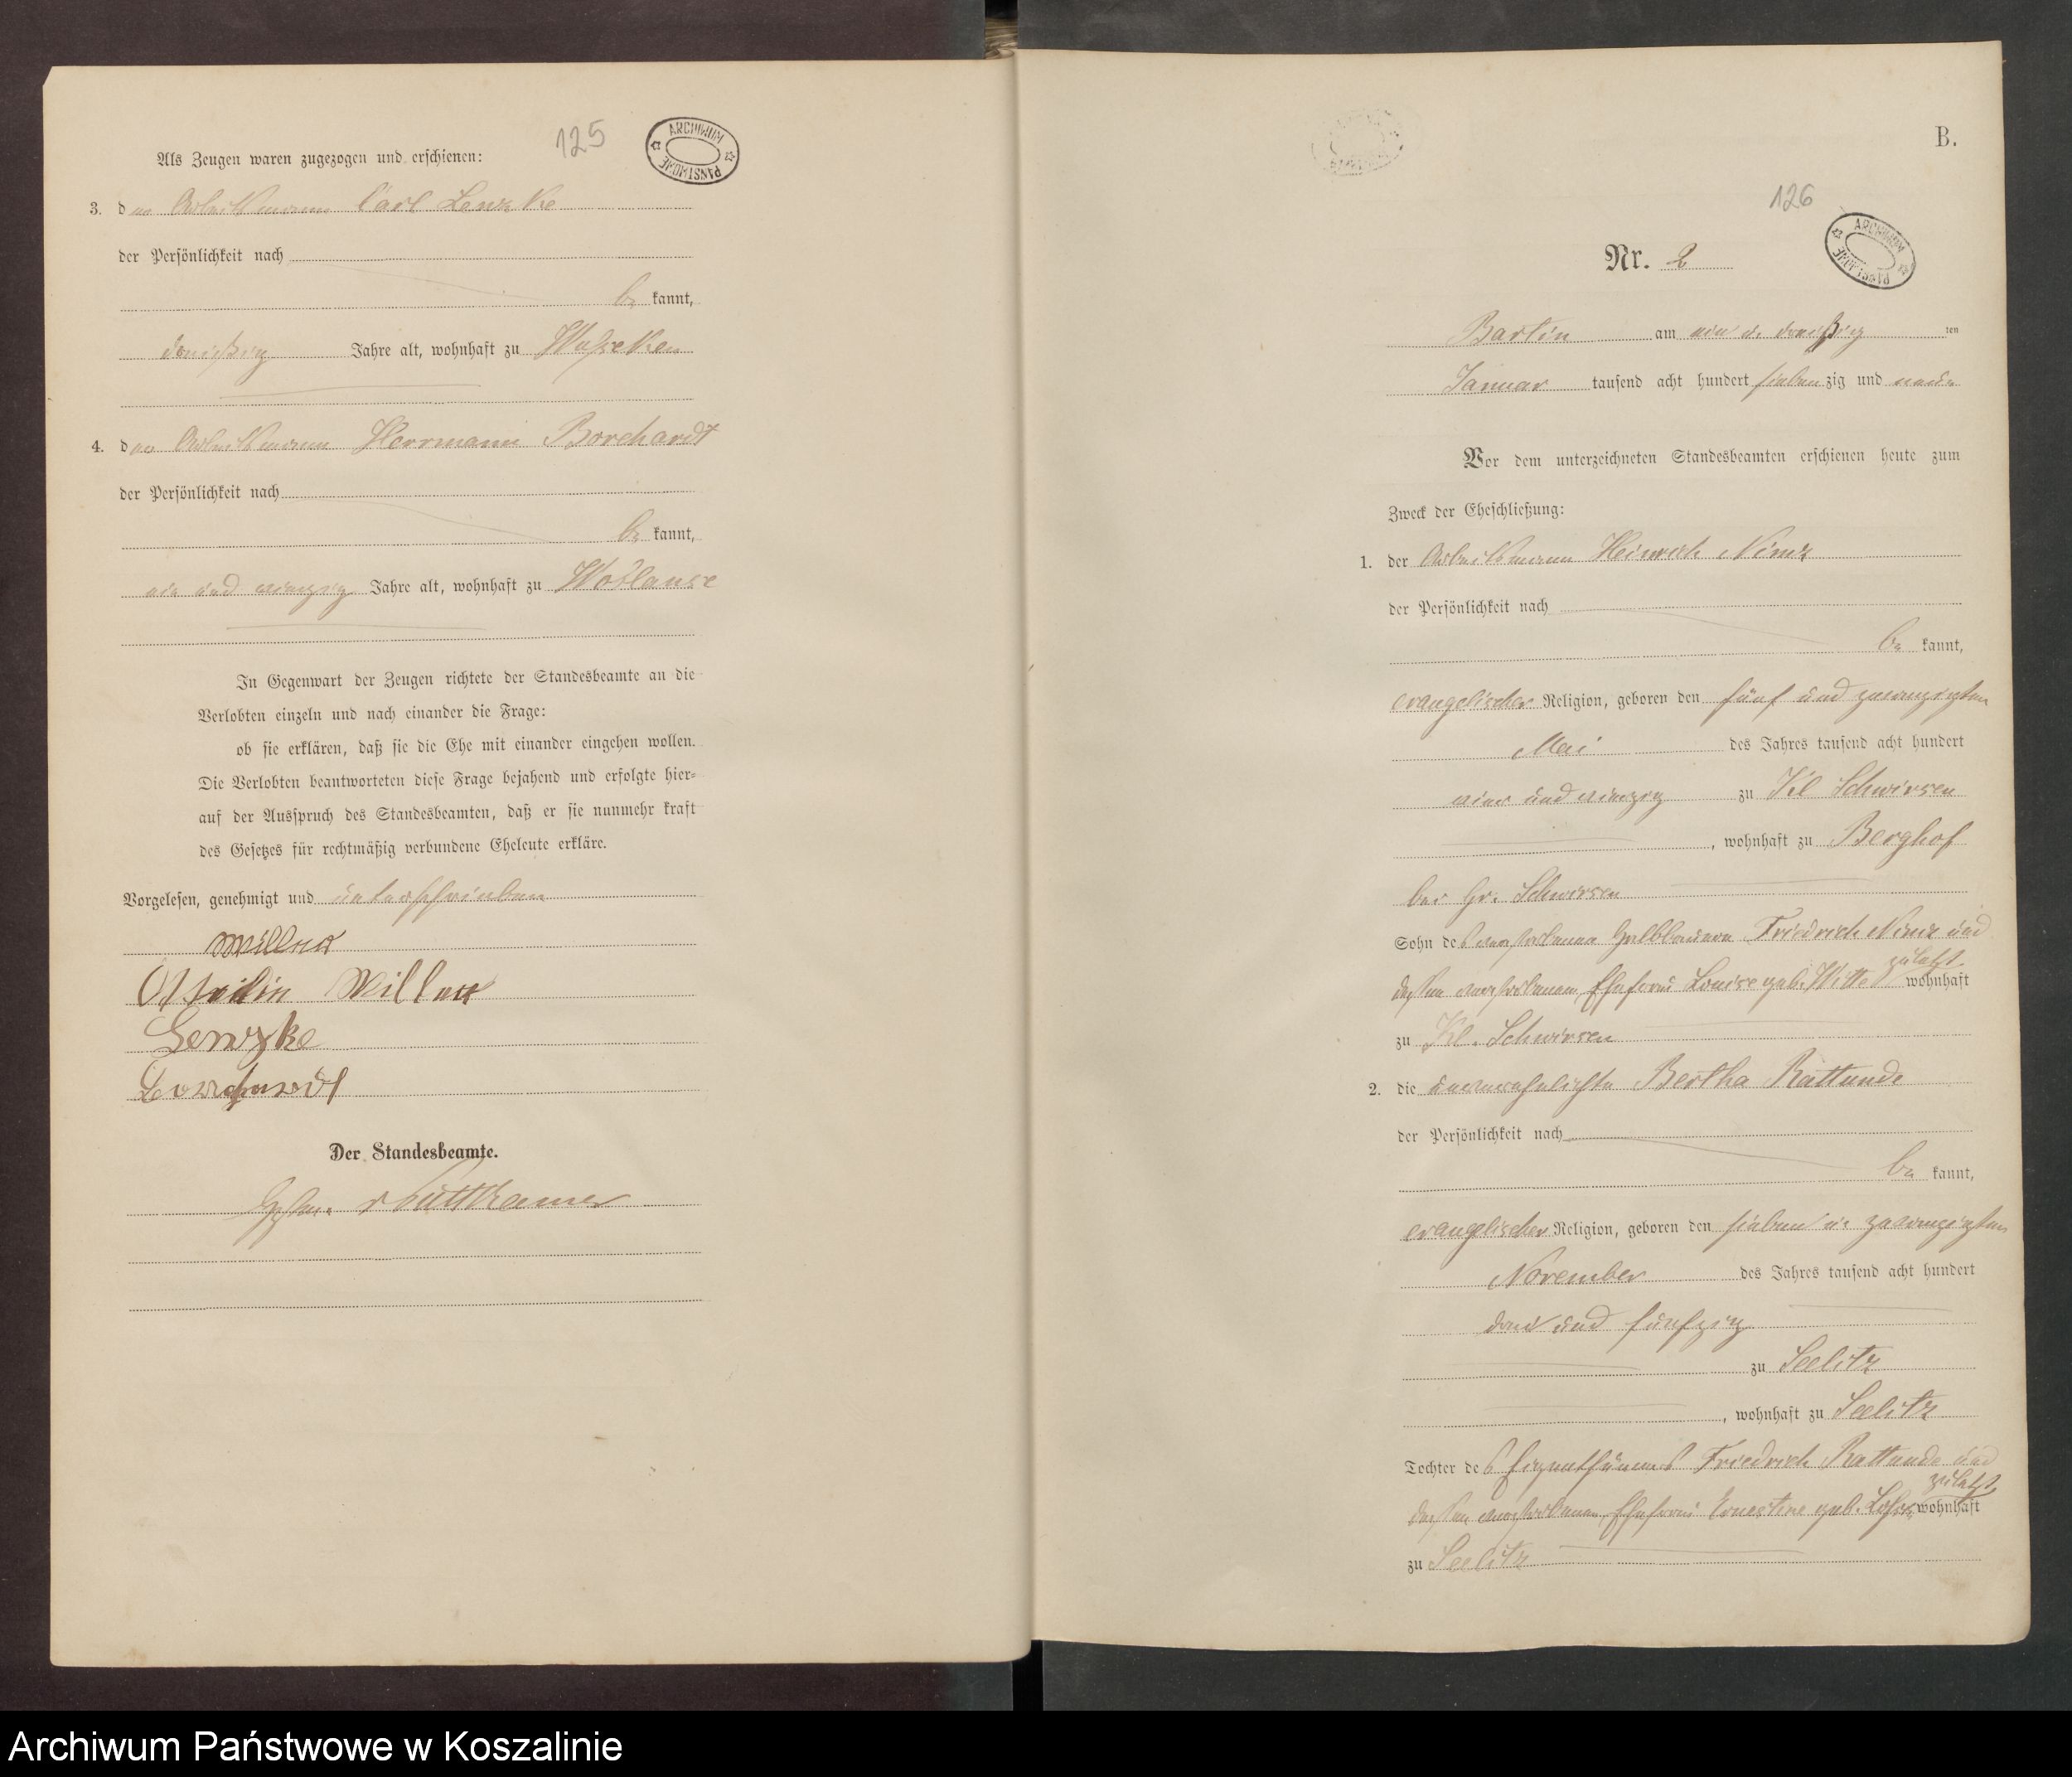 125
ARCHIWUM PAŃSTWOWE
Als Zeugen waren zugezogen und erschienen:
3. der Arbeitsmann Carl Lenzke
der Persönlichkeit nach
be kannt,
dreißig Jahre alt, wohnhaft zu Wusseken
4. der Arbeitsmann Herrmann Borchardt
der Persönlichkeit nach
be kannt,
ein und vierzig Jahre alt, wohnhaft zu Woblanse
In Gegenwart der Zeugen richtete der Standesbeamte an die
Verlobten einzeln und nach einander die Frage:
ob sie erklären, daß sie die Ehe mit einander eingehen wollen.
Die Verlobten beantworteten diese Frage bejahend und erfolgte hier-
auf der Ausspruch des Standesbeamten, daß er sie nunmehr kraft
des Gesetzes für rechtmäßig verbundene Eheleute erkläre.
Vorgelesen, genehmigt und unterschrieben
Lenzke
Borchardt
Der Standesbeamte.
v Puttkamer
B.
126
ARCHIWUM PAŃSTWOWE
Nr. 2
Bartin am ein u. dreißig ten
Januar tausend acht hundert sieben zig und neun
Vor dem unterzeichneten Standesbeamten erschienen heute zum
Zweck der Eheschließung:
1. der Arbeitsmann Heinrich Nimz
der Persönlichkeit nach
be kannt,
evangelischer Religion, geboren den fünf und zwanzigsten
Mai des Jahres tausend acht hundert
vier und vierzig zu Kl Schwirsen
, wohnhaft zu Berghof
bei Gr. Schwirsen
Sohn des verstorbenen Halbbauern Friedrich Nimz und
dessen verstorbenen Ehefrau Louise geb. Witte zuletzt wohnhaft
zu Kl. Schwirsen
2. die unverehelichte Bertha Rattunde
der Persönlichkeit nach
be kannt,
evangelischer Religion, geboren den sieben u. zwanzigsten
November des Jahres tausend acht hundert
drei und fünfzig
zu Seelitz
, wohnhaft zu Seelitz
Tochter des Eigenthümers Friedrich Rattunde und
dessen verstorbenen Ehefrau Ernestine geb. zuletzt wohnhaft
zu Seelitz
Archiwum Państwowe w Koszalinie